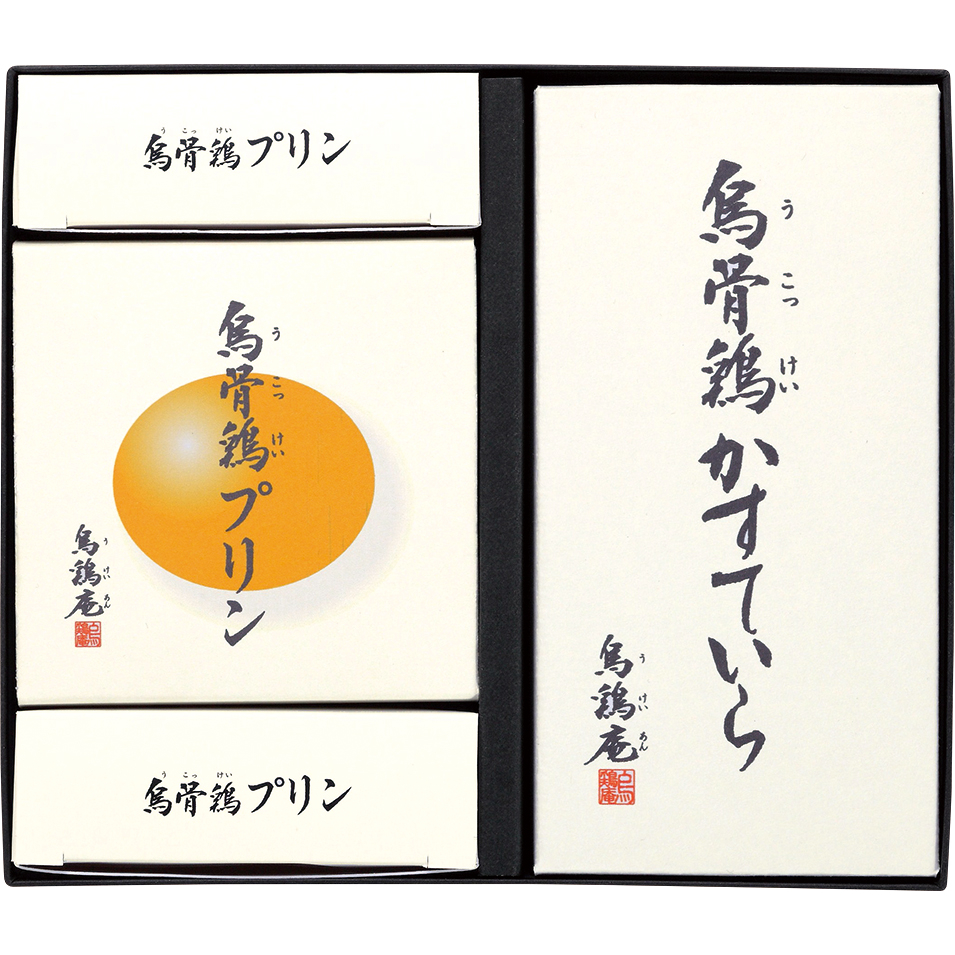 烏骨鶏プリン
うこっけい
烏骨鶏プリン
うこっけい
烏鶏庵
うけいあん
烏骨鶏プリン
うこっけい
烏骨鶏かすていら
うこっけい
烏鶏庵
うけいあん